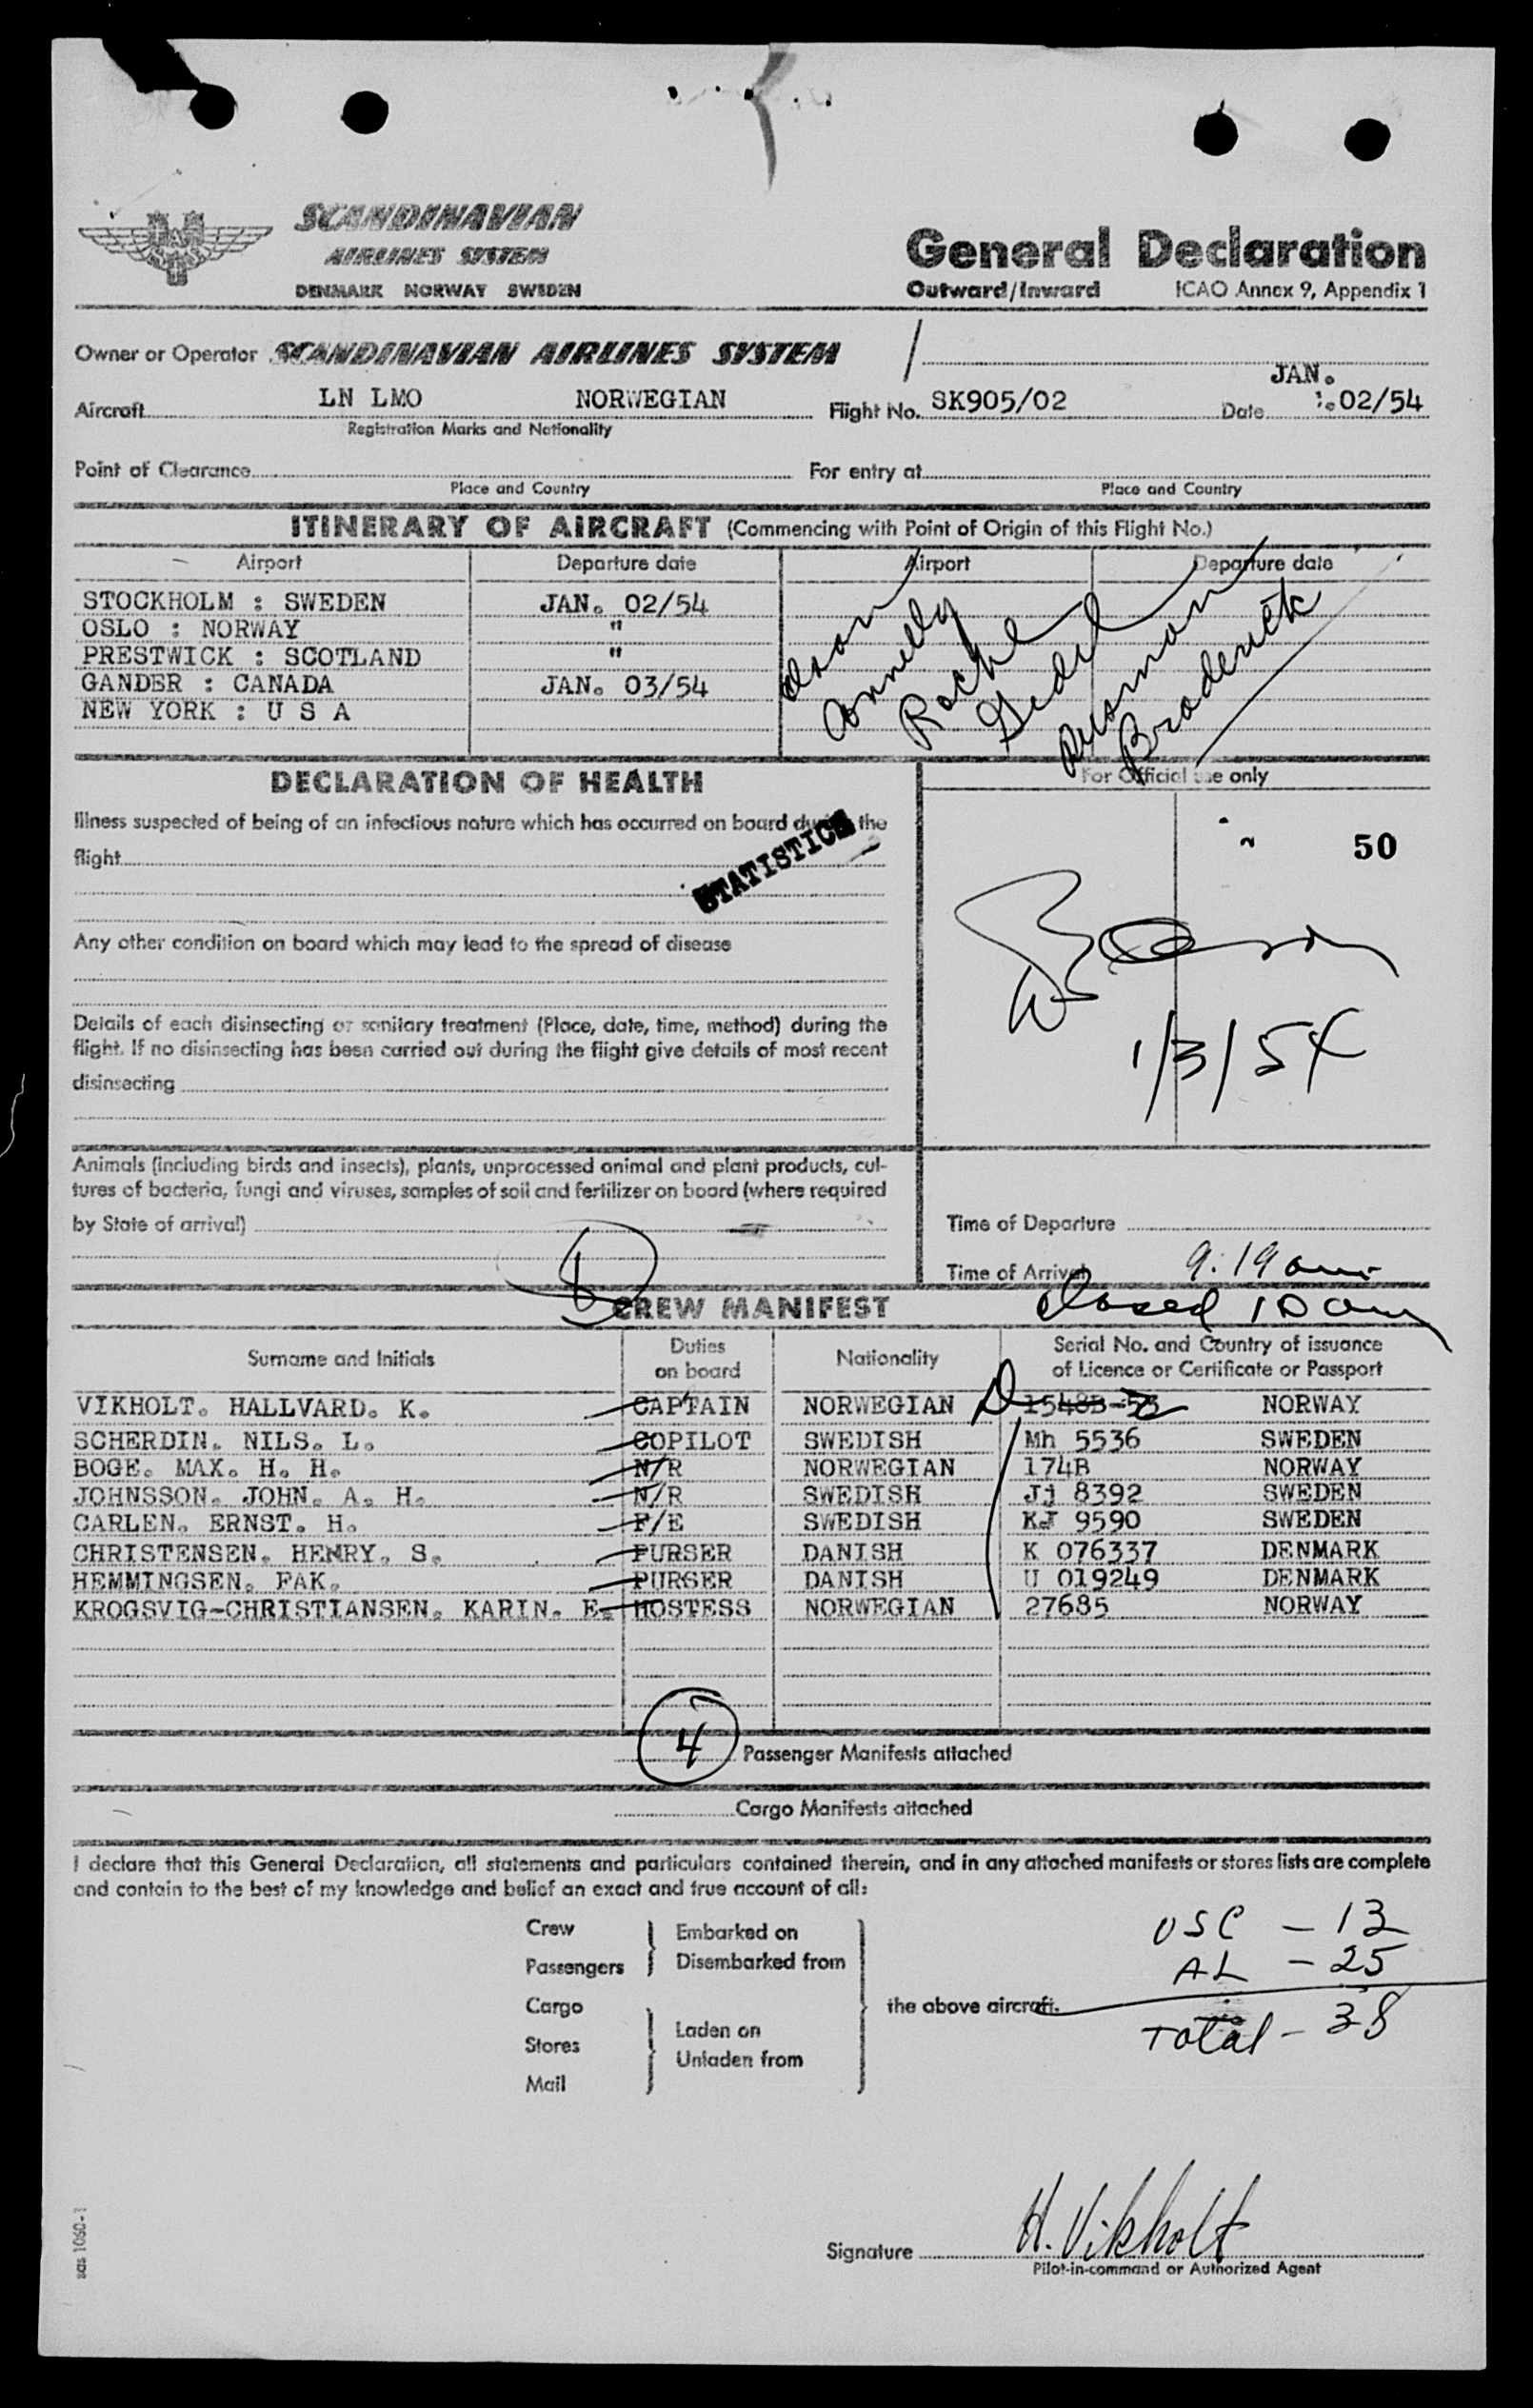 SCANDINAVIAN
AIRLINES SYSTEM
DENMARK NORWAY SWEDEN
General Declaration
Outward/Inward ICAO Annex 9, Appendix 1
Owner or Operator SCANDINAVIAN AIRLINES SYSTEM
JAN.
Aircraft LN LMO NORWEGIAN Flight No. SK905/02 Date 02/54
Registration Marks and Nationality
Point of Clearance For entry at
Place and Country Place and Country
ITINERARY OF AIRCRAFT (Commencing with Point of Origin of this Flight No.)
Airport Departure date Airport Departure date
STOCKHOLM : SWEDEN JAN. 02/54
OSLO : NORWAY "
PRESTWICK : SCOTLAND "
GANDER : CANADA JAN. 03/54
NEW YORK : U S A
Roche
Broderick
DECLARATION OF HEALTH
For Official use only
Illness suspected of being of an infectious nature which has occurred on board during the
flight
STATISTICS
50
Any other condition on board which may lead to the spread of disease
Details of each disinsecting or sanitary treatment (Place, date, time, method) during the
flight. If no disinsecting has been carried out during the flight give details of most recent
disinsecting
1/3/54
Animals (including birds and insects), plants, unprocessed animal and plant products, cul-
tures of bacteria, fungi and viruses, samples of soil and fertilizer on board (where required
by State of arrival)
Time of Departure
Time of Arrival 9:19 am
Closed 10 am
CREW MANIFEST
Surname and Initials Duties on board Nationality Serial No. and Country of issuance of Licence or Certificate or Passport
VIKHOLT. HALLVARD. K. CAPTAIN NORWEGIAN D NORWAY
SCHERDIN. NILS. L. COPILOT SWEDISH Mh 5536 SWEDEN
BOGE. MAX. H. H. N/R NORWEGIAN 174B NORWAY
JOHNSSON. JOHN. A. H. N/R SWEDISH Jj 8392 SWEDEN
CARLEN. ERNST. H. F/E SWEDISH KJ 9590 SWEDEN
CHRISTENSEN. HENRY. S. PURSER DANISH K 076337 DENMARK
HEMMINGSEN. FAK. PURSER DANISH U 019249 DENMARK
KROGSVIG-CHRISTIANSEN. KARIN. E. HOSTESS NORWEGIAN 27685 NORWAY
4 Passenger Manifests attached
Cargo Manifests attached
I declare that this General Declaration, all statements and particulars contained therein, and in any attached manifests or stores lists are complete
and contain to the best of my knowledge and belief an exact and true account of all:
Crew
Passengers
Embarked on
Disembarked from
Cargo
Stores
Mail
Laden on
Unladen from
the above aircraft.
USC - 13
AL - 25
Total - 38
Signature H. Vikholt
Pilot-in-command or Authorized Agent
sas 1050-1